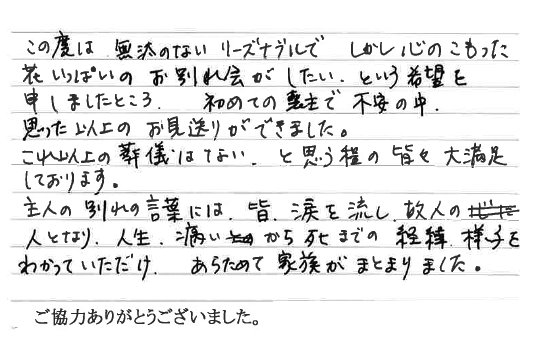 この度は 無駄のない リーズナブルで しかし心のこもった
花いっぱいの お別れ会がしたい、という希望を
申しましたところ、 初めての喪主で 不安の中、
思った以上の お見送りができました。
これ以上の葬儀はない、と思う程の 皆々 大満足
しております。
主人の別れの言葉には、皆、涙を流し、故人の
人となり、人生、病い から死までの 経緯、様子を
わかっていただけ、 あらためて 家族が まとまりました。
ご協力ありがとうございました。